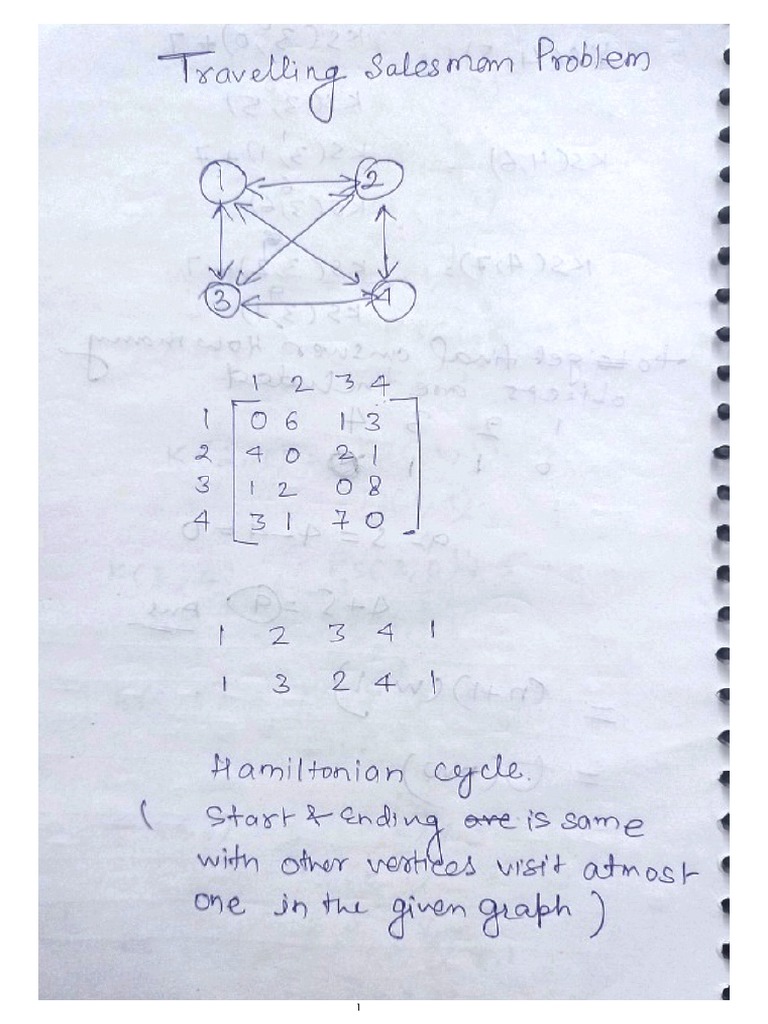 Travelling Salesman Problem
1 2
3 4
1 2 3 4
1 0 6 1 3
2 4 0 2 1
3 1 2 0 8
4 3 1 7 0
1 2 3 4 1
1 3 2 4 1
Hamiltonian cycle.
( Start & Ending are is same
with other vertices visit atmost
one in the given graph )
1